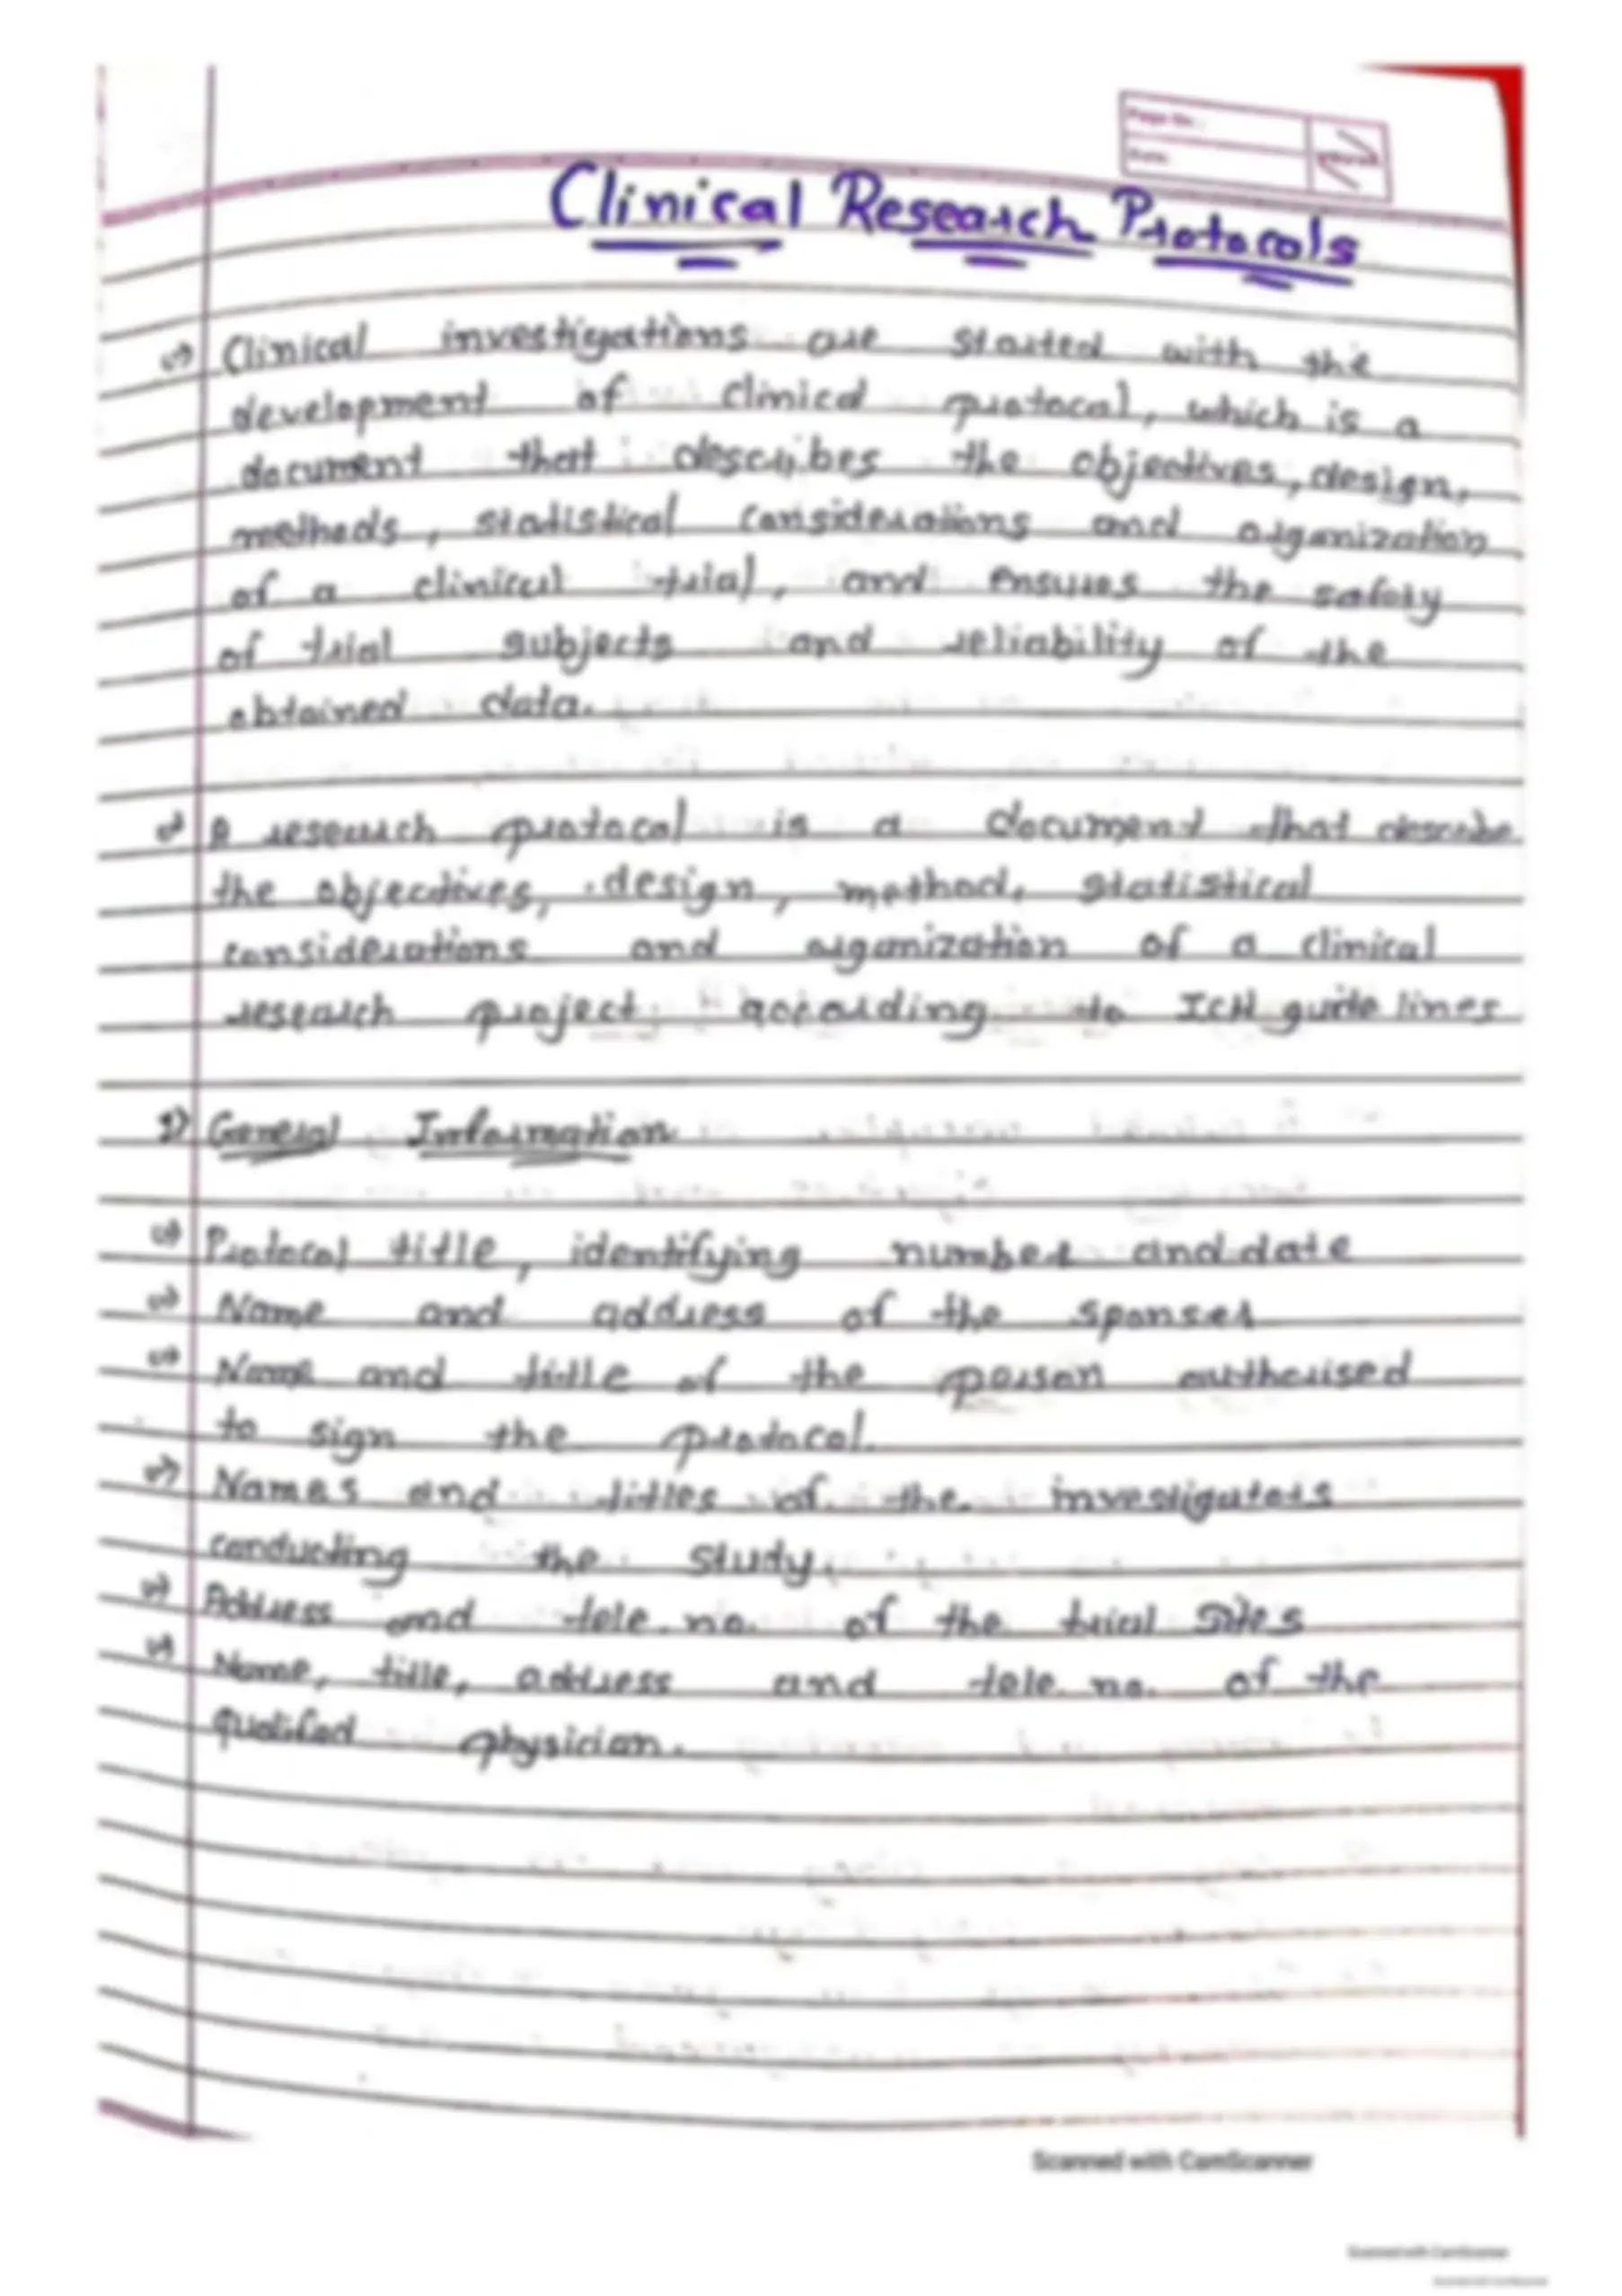 Page No.:
Date:
Clinical Research Protocols
→ Clinical investigations are started with the
development of clinical protocol, which is a
document that describes the objectives, design,
methods, statistical considerations and organization
of a clinical trial, and ensures the safety
of trial subjects and reliability of the
obtained data.
→ A research protocol is a document that describe
the objectives, design, method, statistical
considerations and organization of a clinical
research project according to ICH guide lines
1) General Information
→ Protocol title, identifying number and date
→ Name and address of the sponser
→ Name and title of the person authorised
to sign the protocol.
→ Names and titles of the investigators
conducting the study.
→ Address and tele. no. of the trial Sites
→ Name, title, address and tele. no. of the
qualifed physician.
Scanned with CamScanner
Scanned with CamScanner
Scanned with CamScanner